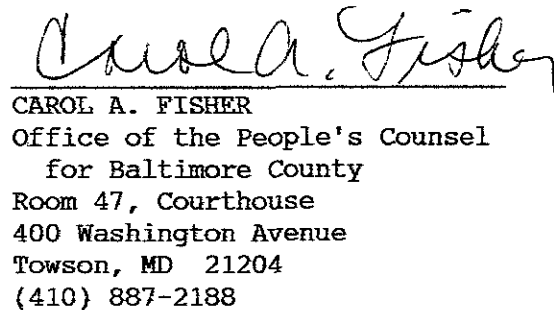 Carol A. Fisher
CAROL A. FISHER
Office of the People's Counsel
for Baltimore County
Room 47, Courthouse
400 Washington Avenue
Towson, MD 21204
(410) 887-2188